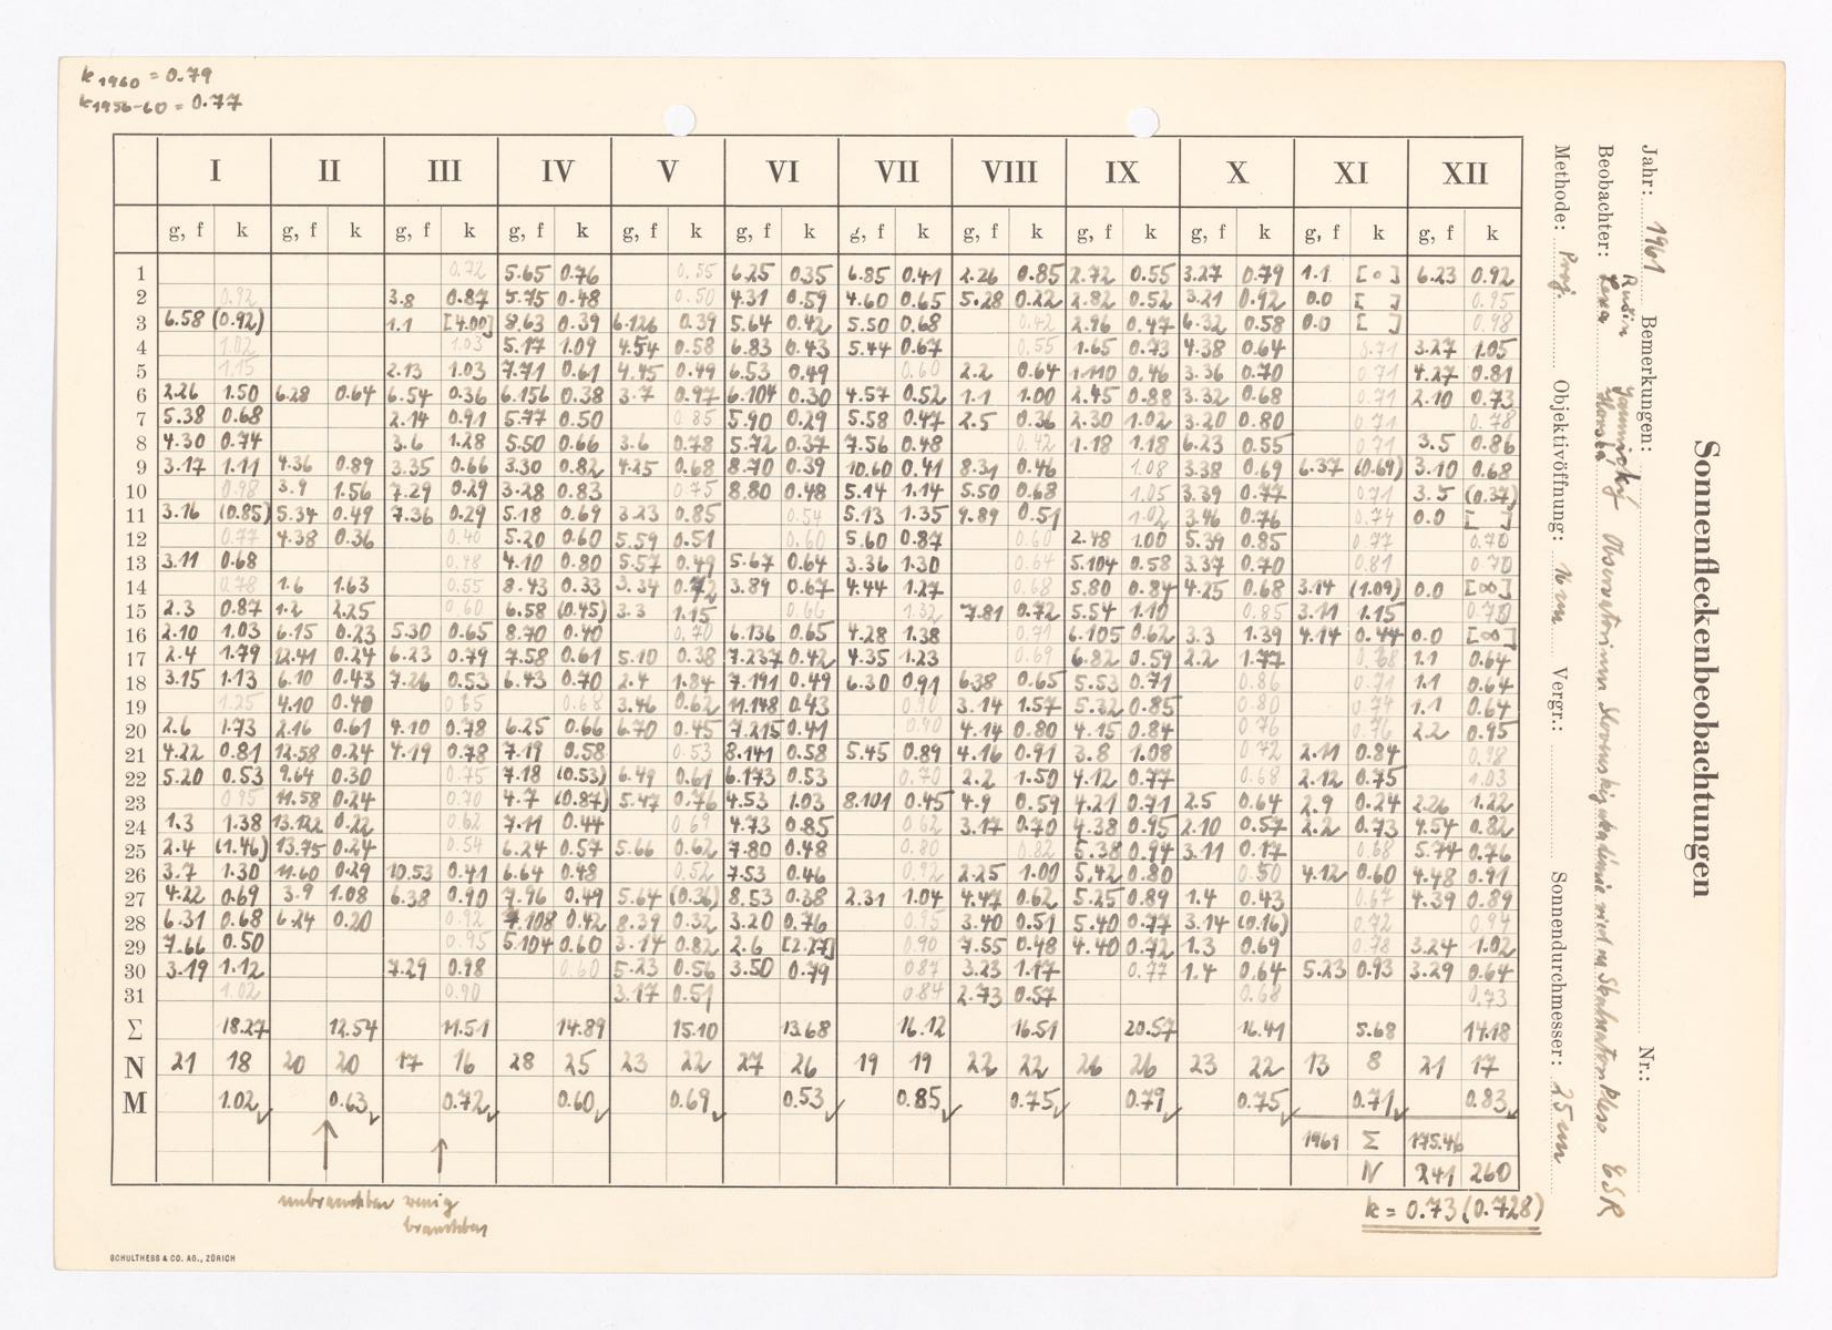 k 1960 = 0.79
k 1956-60 = 0.77
I II III IV V VI VII VIII IX X XI XII
g, f k g, f k g, f k g, f k g, f k g, f k g, f k g, f k g, f k g, f k g, f k g, f k
1 0.72 5.65 0.76 0.55 6.25 0.35 6.85 0.41 2.26 0.85 2.72 0.55 3.27 0.79 1.1 [0] 6.23 0.92
2 0.92 3.8 0.87 5.75 0.48 0.50 4.31 0.59 4.60 0.65 5.28 0.22 2.82 0.52 3.21 0.92 0.0 [ ] 0.95
3 6.58 (0.92) 1.1 [4.00] 8.63 0.39 6.126 0.39 5.64 0.42 5.50 0.68 0.42 2.96 0.47 6.32 0.58 0.0 [ ] 0.98
4 1.02 1.03 5.17 1.09 4.54 0.58 6.83 0.43 5.44 0.67 0.55 1.65 0.73 4.38 0.64 0.71 3.27 1.05
5 1.15 2.13 1.03 7.71 0.61 4.45 0.49 6.53 0.49 0.60 2.2 0.64 1.110 0.46 3.36 0.70 0.71 4.27 0.81
6 2.26 1.50 6.28 0.64 6.54 0.36 6.156 0.38 3.7 0.97 6.104 0.30 4.57 0.52 1.1 1.00 2.45 0.88 3.32 0.68 0.71 2.10 0.73
7 5.38 0.68 2.14 0.91 5.77 0.50 0.85 5.90 0.29 5.58 0.47 2.5 0.36 2.30 1.02 3.20 0.80 0.71 0.78
8 4.30 0.74 3.6 1.28 5.50 0.66 3.6 0.78 5.72 0.37 7.56 0.48 0.42 1.18 1.18 6.23 0.55 0.71 3.5 0.86
9 3.17 1.11 4.36 0.89 3.35 0.66 3.30 0.82 4.25 0.68 8.70 0.39 10.60 0.41 8.31 0.46 1.08 3.38 0.69 6.37 (0.69) 3.10 0.68
10 0.98 3.9 1.56 7.29 0.29 3.28 0.83 0.75 8.80 0.48 5.14 1.14 5.50 0.68 1.05 3.39 0.77 0.71 3.5 (0.37)
11 3.16 (0.85) 5.34 0.49 7.36 0.29 5.18 0.69 3.23 0.85 0.54 5.13 1.35 9.89 0.51 1.02 3.46 0.76 0.74 0.0 [ ]
12 0.77 4.38 0.36 0.40 5.20 0.60 5.59 0.51 0.60 5.60 0.87 0.60 2.48 1.00 5.39 0.85 0.77 0.70
13 3.11 0.68 0.48 4.10 0.80 5.57 0.49 5.67 0.64 3.36 1.30 0.64 5.104 0.58 3.37 0.70 0.81 0.70
14 0.78 1.6 1.63 0.55 8.43 0.33 3.34 0.72 3.89 0.67 4.44 1.27 0.68 5.80 0.84 4.25 0.68 3.14 (1.09) 0.0 [∞]
15 2.3 0.87 1.2 2.25 0.60 6.58 (0.45) 3.3 1.15 0.66 1.32 7.81 0.72 5.54 1.10 0.85 3.11 1.15 0.70
16 2.10 1.03 6.15 0.23 5.30 0.65 8.70 0.40 0.70 6.136 0.65 4.28 1.38 0.71 6.105 0.62 3.3 1.39 4.14 0.44 0.0 [∞]
17 2.4 1.79 12.41 0.24 6.23 0.79 7.58 0.61 5.10 0.38 7.237 0.42 4.35 1.23 0.69 6.82 0.59 2.2 1.77 0.68 1.1 0.64
18 3.15 1.13 6.10 0.43 7.26 0.53 6.43 0.70 2.4 1.84 7.191 0.49 6.30 0.91 6.38 0.65 5.53 0.71 0.86 0.71 1.1 0.64
19 1.25 4.10 0.40 0.65 0.68 3.46 0.62 11.148 0.43 0.90 3.14 1.57 5.32 0.85 0.80 0.74 1.1 0.64
20 2.6 1.73 2.16 0.61 4.10 0.78 6.25 0.66 6.70 0.45 7.215 0.41 0.90 4.14 0.80 4.15 0.84 0.76 0.76 2.2 0.95
21 4.22 0.81 12.58 0.24 4.19 0.78 7.19 0.58 0.53 8.141 0.58 5.45 0.89 4.16 0.91 3.8 1.08 0.72 2.11 0.84 0.98
22 5.20 0.53 9.64 0.30 0.75 7.18 (0.53) 6.49 0.61 6.173 0.53 0.70 2.2 1.50 4.12 0.77 0.68 2.12 0.75 1.03
23 0.95 11.58 0.24 0.70 4.7 (0.87) 5.47 0.76 4.53 1.03 8.101 0.45 4.9 0.59 4.21 0.71 2.5 0.64 2.9 0.24 2.26 1.22
24 1.3 1.38 13.122 0.22 0.62 7.11 0.44 0.69 4.73 0.85 0.62 3.17 0.70 4.38 0.95 2.10 0.57 2.2 0.73 4.54 0.82
25 2.4 (1.46) 13.75 0.24 0.54 6.24 0.57 5.66 0.62 7.80 0.48 0.80 0.82 5.38 0.94 3.11 0.17 0.68 5.74 0.76
26 3.7 1.30 11.60 0.29 10.53 0.41 6.64 0.48 0.52 7.53 0.46 0.92 2.25 1.00 5.42 0.80 0.50 4.12 0.60 4.48 0.91
27 4.22 0.69 3.9 1.08 6.38 0.90 7.96 0.49 5.64 (0.36) 8.53 0.38 2.31 1.04 4.47 0.62 5.25 0.89 1.4 0.43 0.67 4.39 0.89
28 6.31 0.68 6.24 0.20 0.92 7.108 0.42 8.39 0.32 3.20 0.76 0.95 3.40 0.51 5.40 0.77 3.14 (0.16) 0.72 0.94
29 7.66 0.50 0.95 5.104 0.60 3.14 0.82 2.6 [2.27] 0.90 7.55 0.48 4.40 0.72 1.3 0.69 0.78 3.24 1.02
30 3.19 1.12 7.29 0.98 0.60 5.23 0.56 3.50 0.79 0.87 3.23 1.17 0.77 1.4 0.64 5.23 0.93 3.29 0.64
31 1.02 0.90 3.17 0.51 0.84 2.73 0.57 0.68 0.73
Σ 18.27 12.54 11.51 14.89 15.10 13.68 16.12 16.51 20.57 16.41 5.68 14.18
N 21 18 20 20 17 16 28 25 23 22 27 26 19 19 22 22 26 26 23 22 13 8 21 17
M 1.02 0.63 0.72 0.60 0.69 0.53 0.85 0.75 0.79 0.75 0.71 0.83
1961 Σ 175.46
N 241 260
k = 0.73 (0.728)
unbrauchbar wenig
brauchbar
SCHULTHESS & CO. AG., ZÜRICH
Sonnenfleckenbeobachtungen
Jahr: 1961 Bemerkungen: Nr.:
Rušin
Beobachter: Observatorium Slovenskej akademie vied
Methode: Proj. Objektivöffnung: Vergr.: Sonnendurchmesser: 25 cm